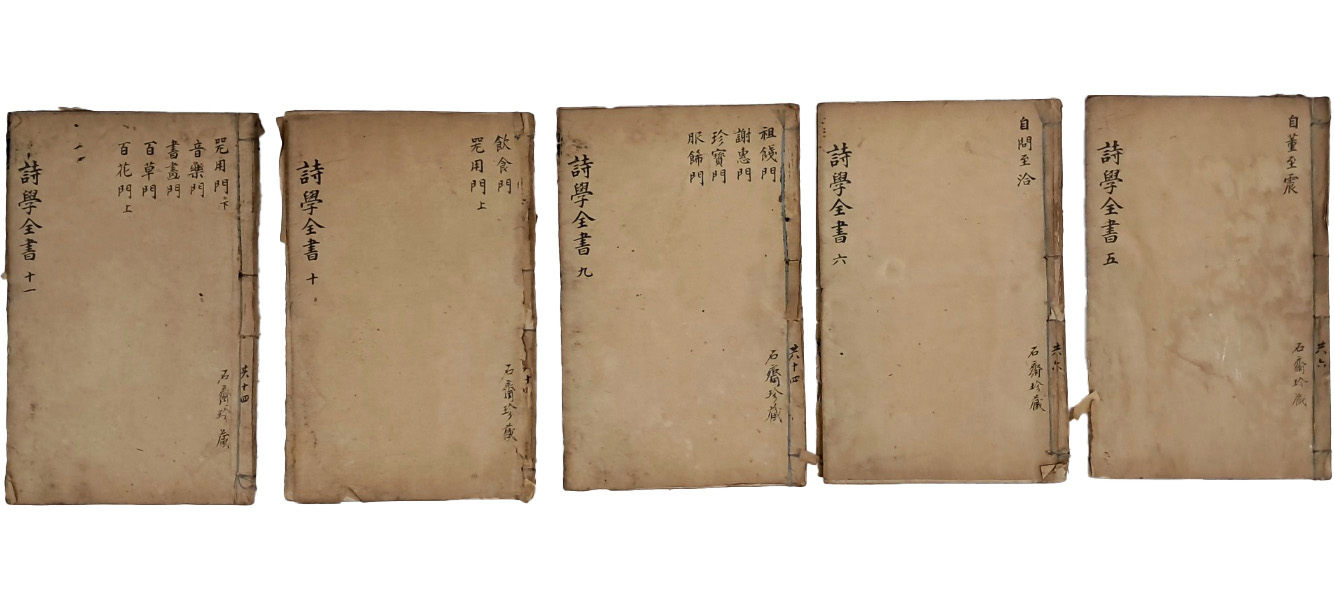 自董至震
詩學全書 五
石齋珍藏
共六
自問至洽
詩學全書 六
石齋珍藏
共六
祖餞門
謝惠門
珍寶門
服飾門
詩學全書 九
石齋珍藏
共十四
飲食門
咒用門上
詩學全書 十
石齋珍藏
咒用門下
音樂門
書畫門
百草門
百花門上
詩學全書 十一
石齋珍藏
共十四